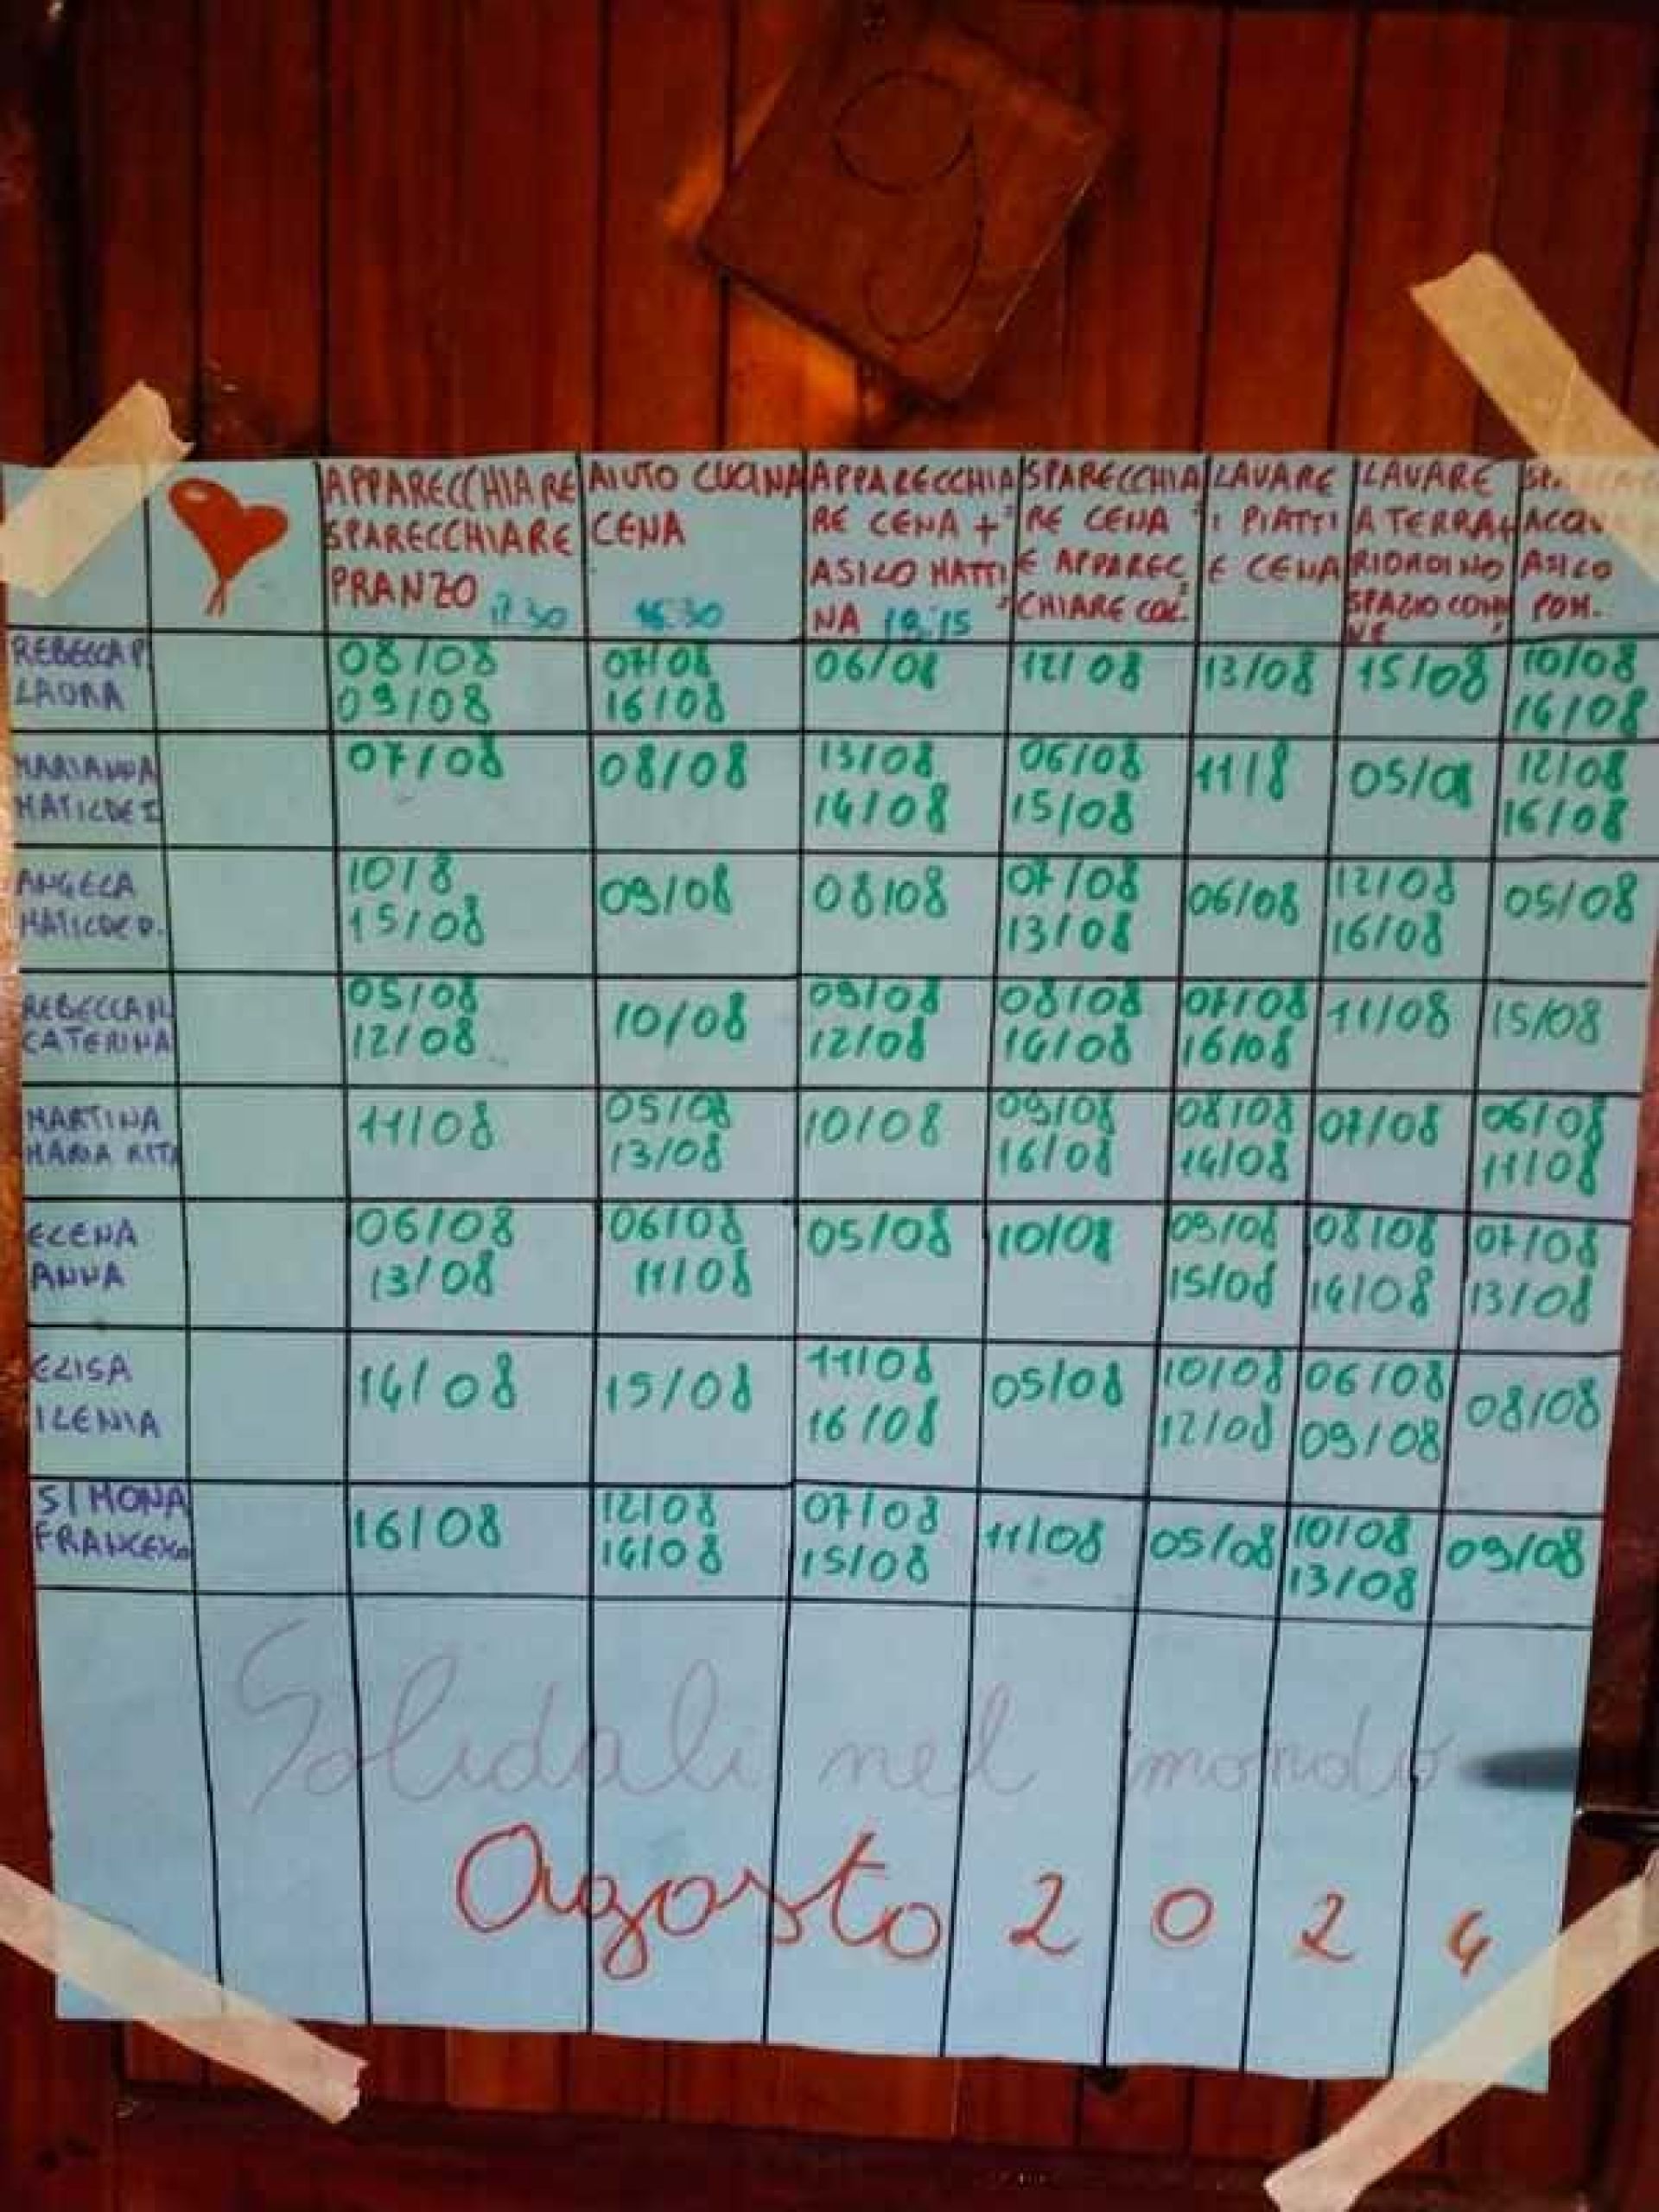 9
APPARECCHIARE
SPARECCHIARE
PRANZO
AIUTO CUCINA
CENA
16:30
APPARECCHIA
RE CENA +
ASILO MATTI
NA 19:15
SPARECCHIA
RE CENA
E APPAREC
CHIARE COL.
LAVARE
I PIATTI
E CENA
LAVARE
A TERRA +
RIORDINO
SPAZIO COMU
NE
ASILO
POM.
REBECCA P.
LAURA
08/08
09/08
07/08
16/08
06/08
12/08
13/08
15/08
10/08
14/08
MARIANNA
MATILDE I
07/08
08/08
13/08
14/08
06/08
15/08
11/8
05/08
12/08
16/08
ANGELA
MATILDE D.
10/8
15/08
09/08
08/08
07/08
13/08
06/08
12/08
16/08
05/08
REBECCA N.
CATERINA
05/08
12/08
10/08
09/08
12/08
08/08
14/08
07/08
16/08
11/08
15/08
MARTINA
MARIA RITA
11/08
05/08
13/08
10/08
09/08
16/08
08/08
14/08
07/08
06/08
11/08
ELENA
ANNA
06/08
13/08
06/08
11/08
05/08
10/08
09/08
15/08
08/08
14/08
07/08
13/08
ELISA
ILENIA
14/08
15/08
11/08
16/08
05/08
10/08
12/08
06/08
09/08
08/08
SIMONA
FRANCESCO
16/08
12/08
14/08
07/08
15/08
11/08
05/08
10/08
13/08
09/08
Solidali nel mondo
Agosto 2024